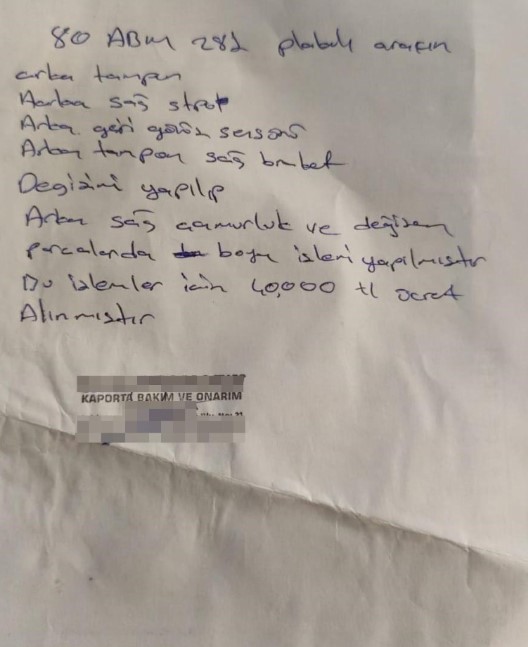 80 ABM 282 plakalı aracın
arka tampon
Aarka sağ stop
Arka geri görüş sensörü
Arka tampon sağ braket
Degizimi yapılıp
Arka sağ çamurluk ve değişen
parcalarıda boya işleri yapılmıştır
Bu işlemler icin 40,000 tl ücret
Alınmıştır
KAPORTA BAKIM VE ONARIM